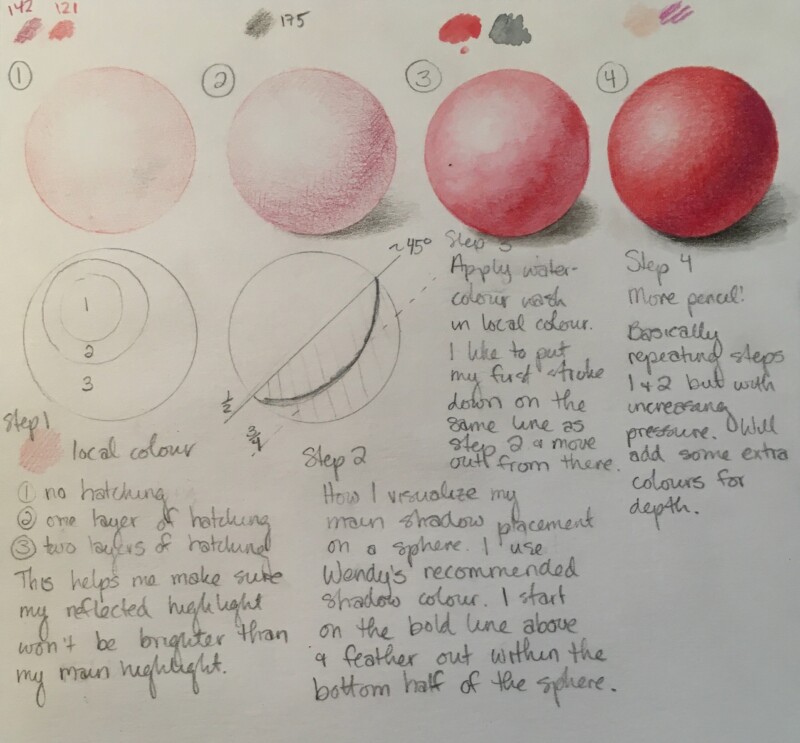 142 121
175
1
2
3
4
1
2
3
~45°
1/2
3/4
Step 1
local colour
1 no hatching
2 one layer of hatching
3 two layers of hatching
This helps me make sure
my reflected highlight
won't be brighter than
my main highlight.
Step 2
How I visualize my
main shadow placement
on a sphere. I use
Wendy's recommended
shadow colour. I start
on the bold line above
& feather out within the
bottom half of the sphere.
Step 3
Apply water-
colour wash
in local colour.
I like to put
my first stroke
down on the
same line as
step 2 & move
out from there.
Step 4
More pencil!
Basically
repeating steps
1 & 2 but with
increasing
pressure. Will
add some extra
colours for
depth.